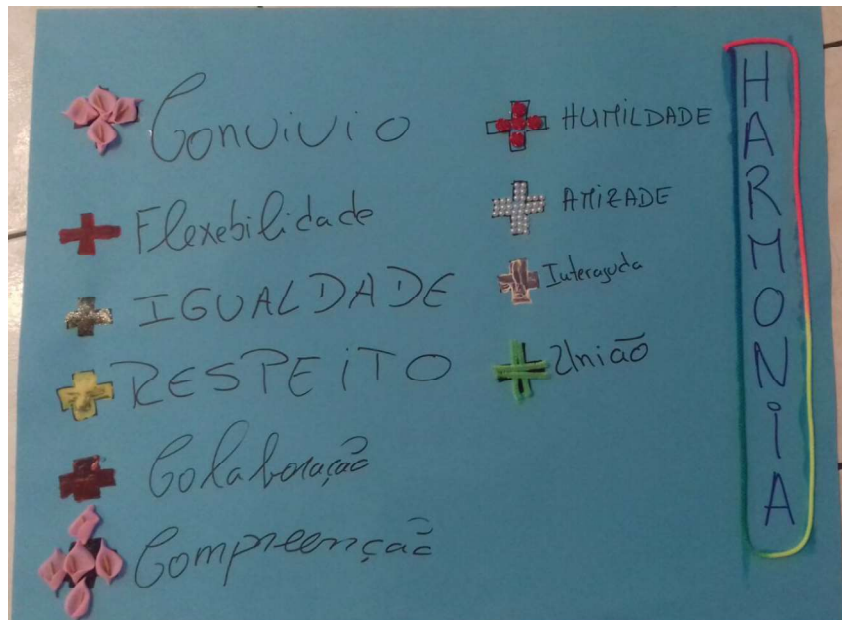 Convivio
Flexebilidade
IGUALDADE
RESPEITO
Colaboração
Compreenção
HUMILDADE
AMIZADE
Interajuda
União
HARMONIA